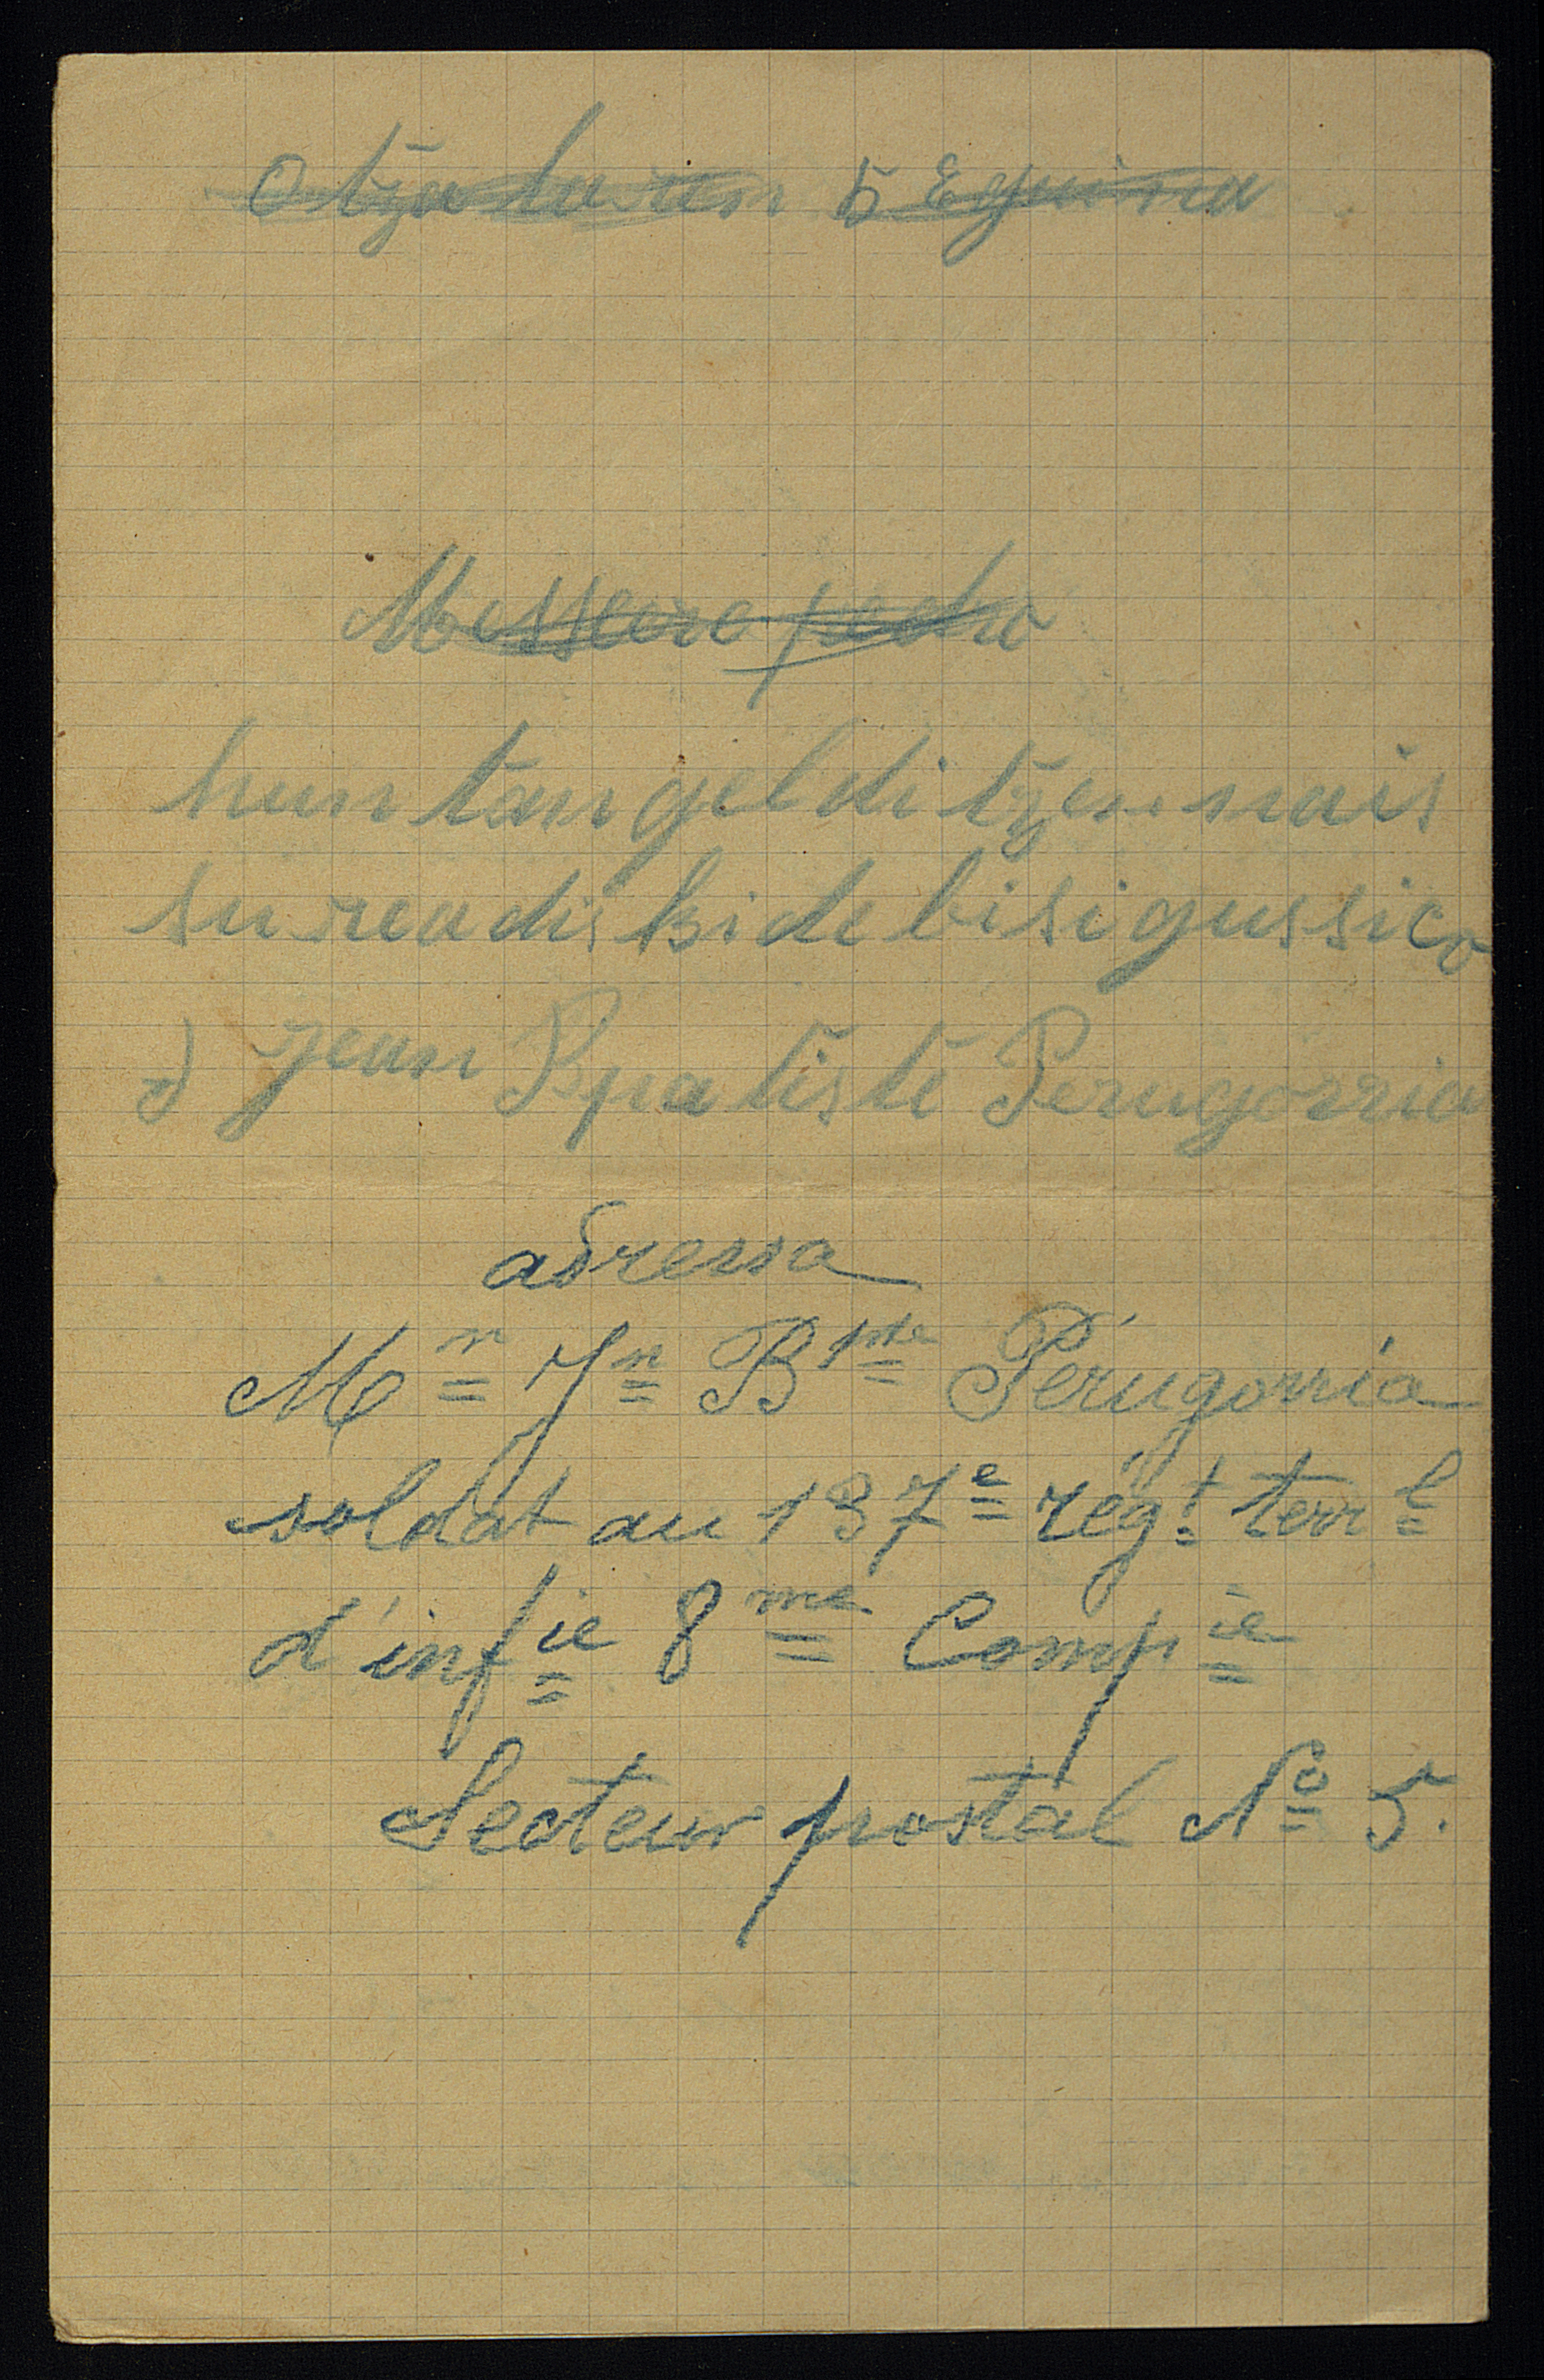 Otzabaren 5 Eguina
Messeire pedro
huntan geldi tzen nais
su rea dis ki de bisi gussico
Jean Bpatiste Perugorria
adressa
Mr Jn Bte Pérugorria
soldat au 137e régt terrl
d'infie 8me Compie
Secteur postal No 5.